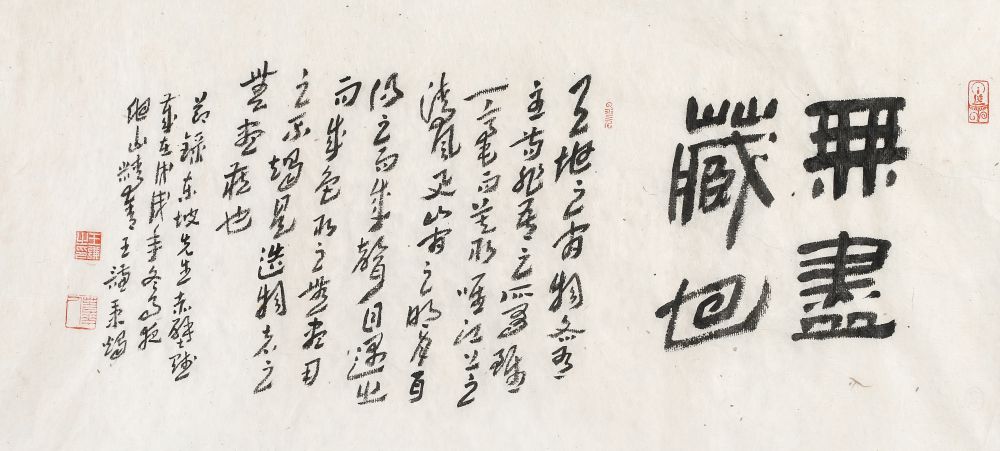 無盡
藏也
天地之間物各有
主苟非吾之所有雖
一毫而莫取唯江上之
清風與山間之明月耳
得之而為聲目遇之
而成色取之無盡用
之不竭是造物者之
無盡藏也
節錄東坡先生赤壁賦
歲在戊戌年冬月夜
山王謙秉燭